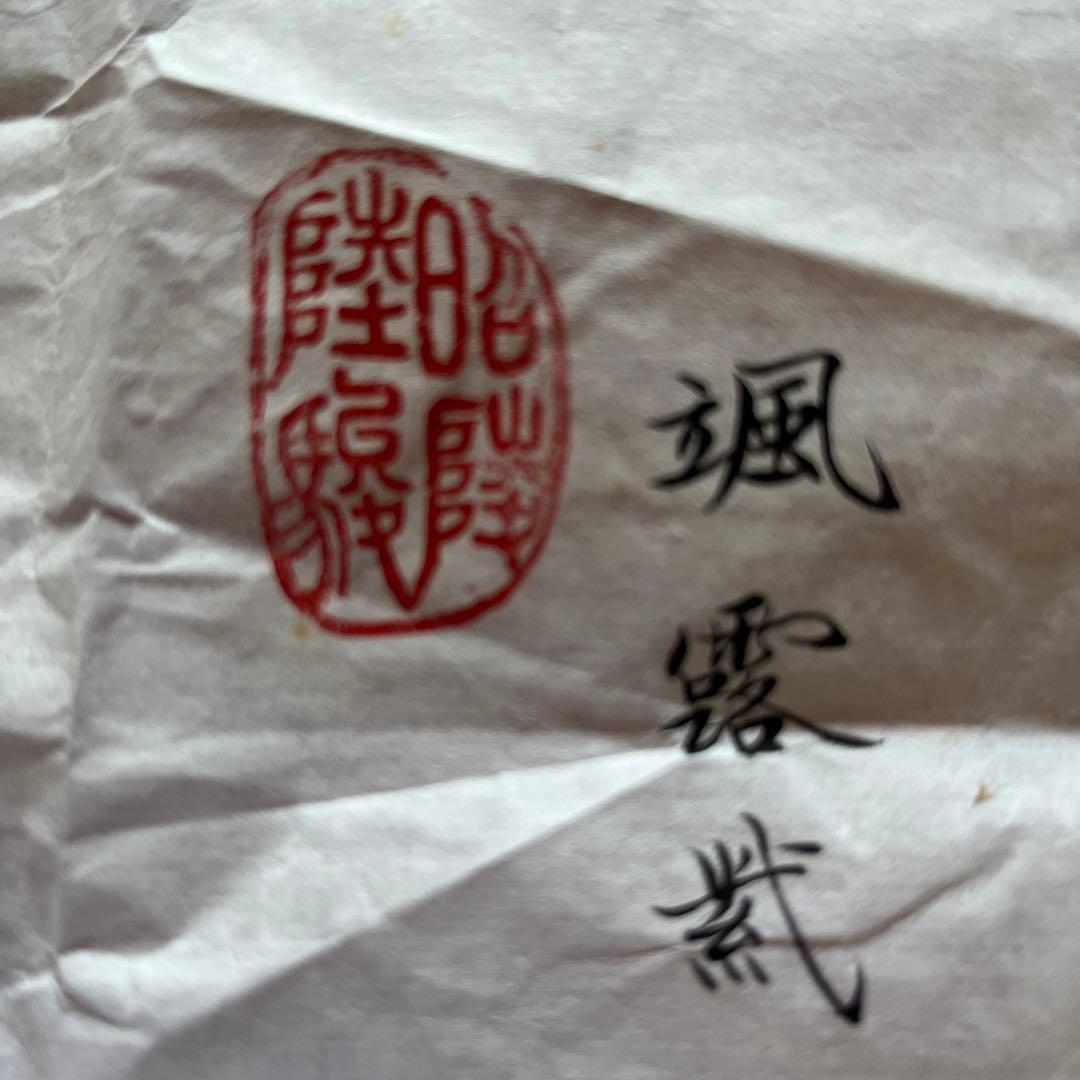 昭陵陸駿
颯露紫